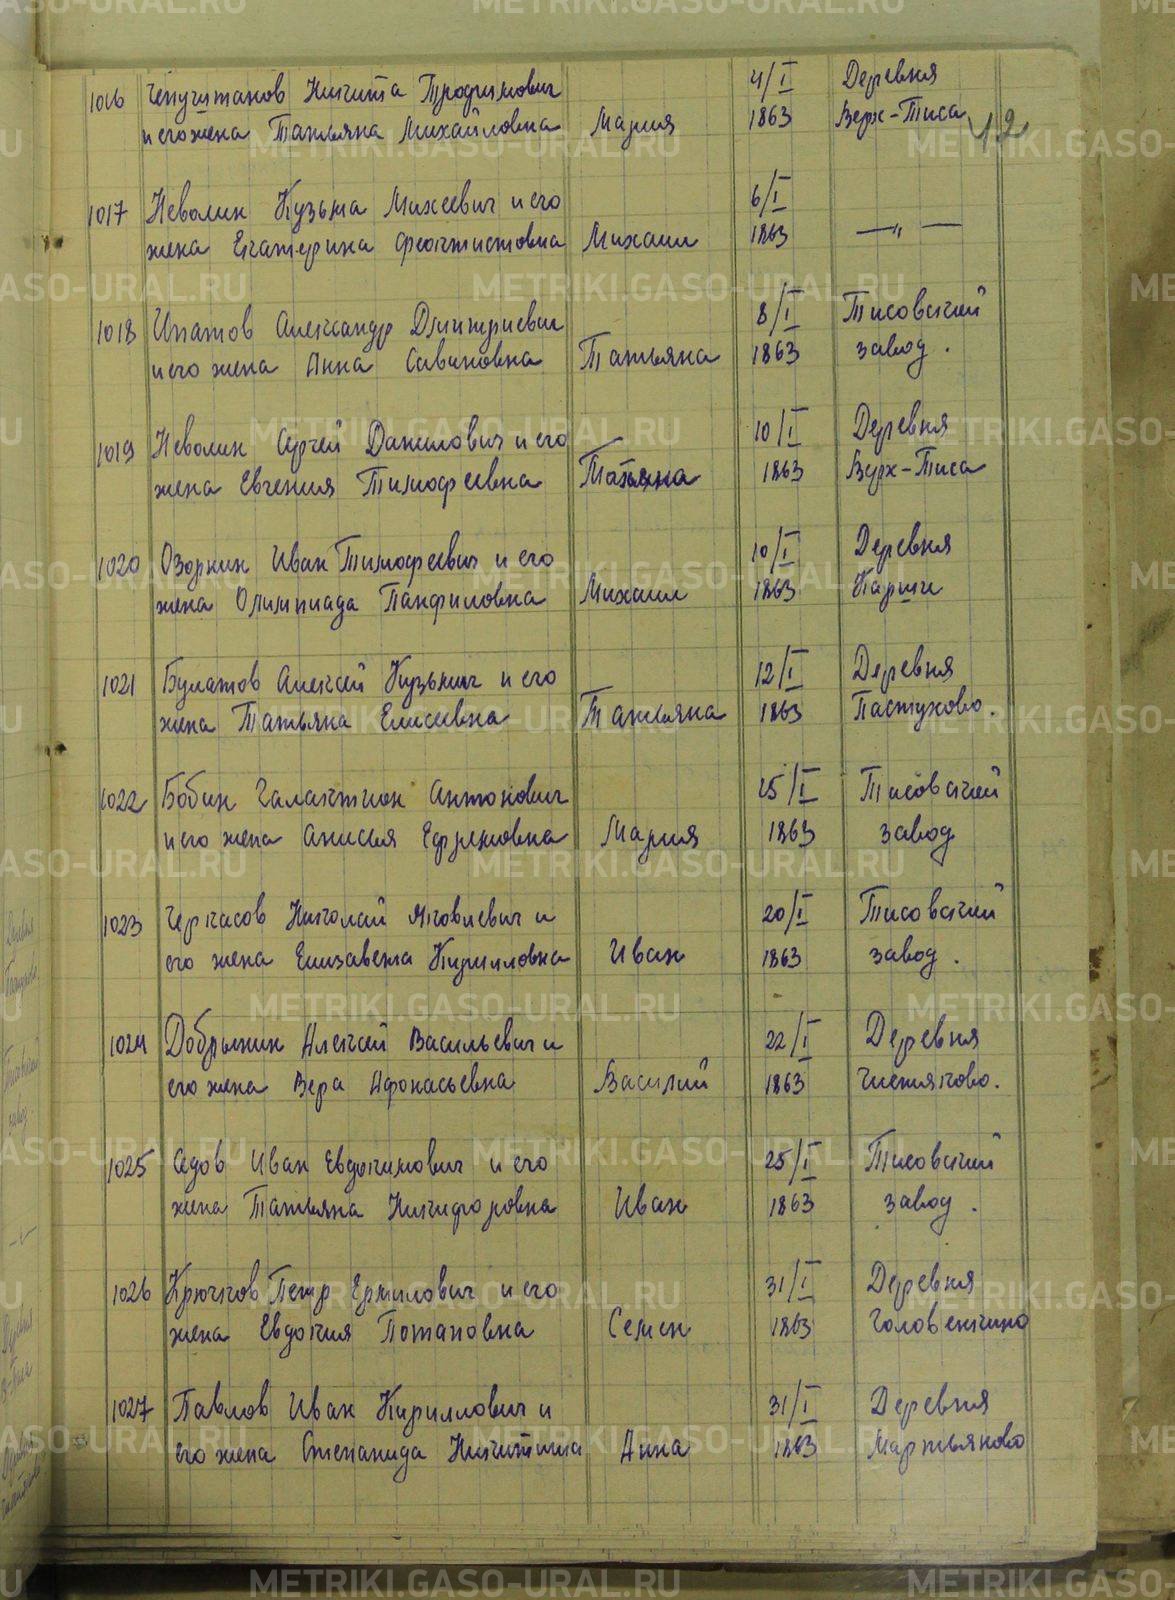 42
1016 Чепуштанов Никита Трофимович 4/I Деревня
и его жена Татьяна Михайловна Мария 1863 Верх-Тиса
1017 Неволин Кузьма Михеевич и его 6/I
жена Екатерина Феоктистовна Михаил 1863 —„—
1018 Ипатов Александр Дмитриевич 8/I Тисовский
и его жена Анна Савиновна Татьяна 1863 завод.
1019 Неволин Сергей Данилович и его 10/I Деревня
жена Евгения Тимофеевна Татьяна 1863 Верх-Тиса
1020 Озорнин Иван Тимофеевич и его 10/I Деревня
жена Олимпиада Панфиловна Михаил 1863 Карши
1021 Булатов Алексей Кузьмич и его 12/I Деревня
жена Татьяна Елисеевна Татьяна 1863 Пастухово.
1022 Бобин Галактион Антонович 15/I Тисовский
и его жена Анисья Ефремовна Мария 1863 завод
1023 Черкасов Николай Яковлевич и 20/I Тисовский
его жена Елизавета Кирилловна Иван 1863 завод.
1024 Добрынин Алексей Васильевич и 22/I Деревня
его жена Вера Афонасьевна Василий 1863 Чистяково.
1025 Седов Иван Евдокимович и его 25/I Тисовский
жена Татьяна Никифоровна Иван 1863 завод.
1026 Крючков Петр Ермилович и его 31/I Деревня
жена Евдокия Потаповна Семен 1863 Головенкино
1027 Павлов Иван Кириллович и 31/I Деревня
его жена Степанида Никитична Анна 1863 Мартьяново
METRIKI.GASO-URAL.RU